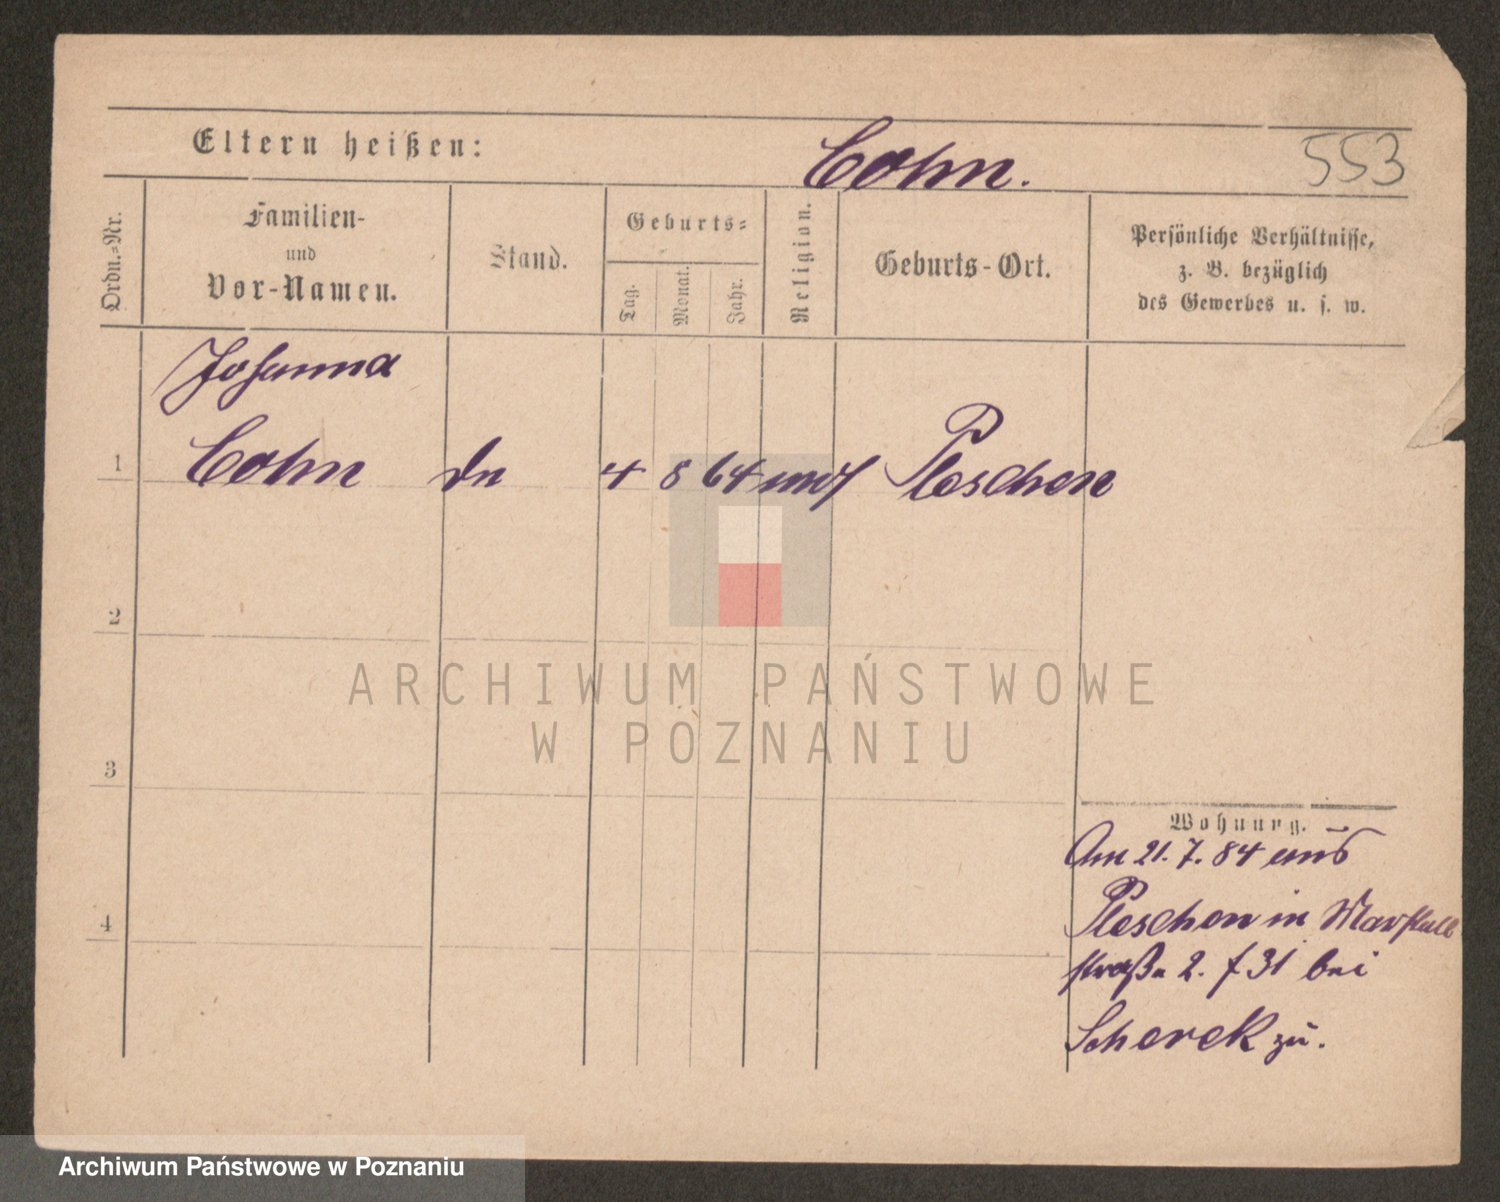 Eltern heißen:
Cohn.
553
Ordn.-Nr.
Familien-
und
Vor-Namen.
Stand.
Geburts-
Tag.
Monat.
Jahr.
Religion.
Geburts-Ort.
Persönliche Verhältnisse,
z. B. bezüglich
des Gewerbes u. s. w.
Johanna
1 Cohn 4 8 64 mos Pleschen
2
3
4
Wohnung.
Am 21. 7. 84 aus
Pleschen in Marstall
straße 2. f 31 bei
Scherek zu.
ARCHIWUM PAŃSTWOWE
W POZNANIU
Archiwum Państwowe w Poznaniu